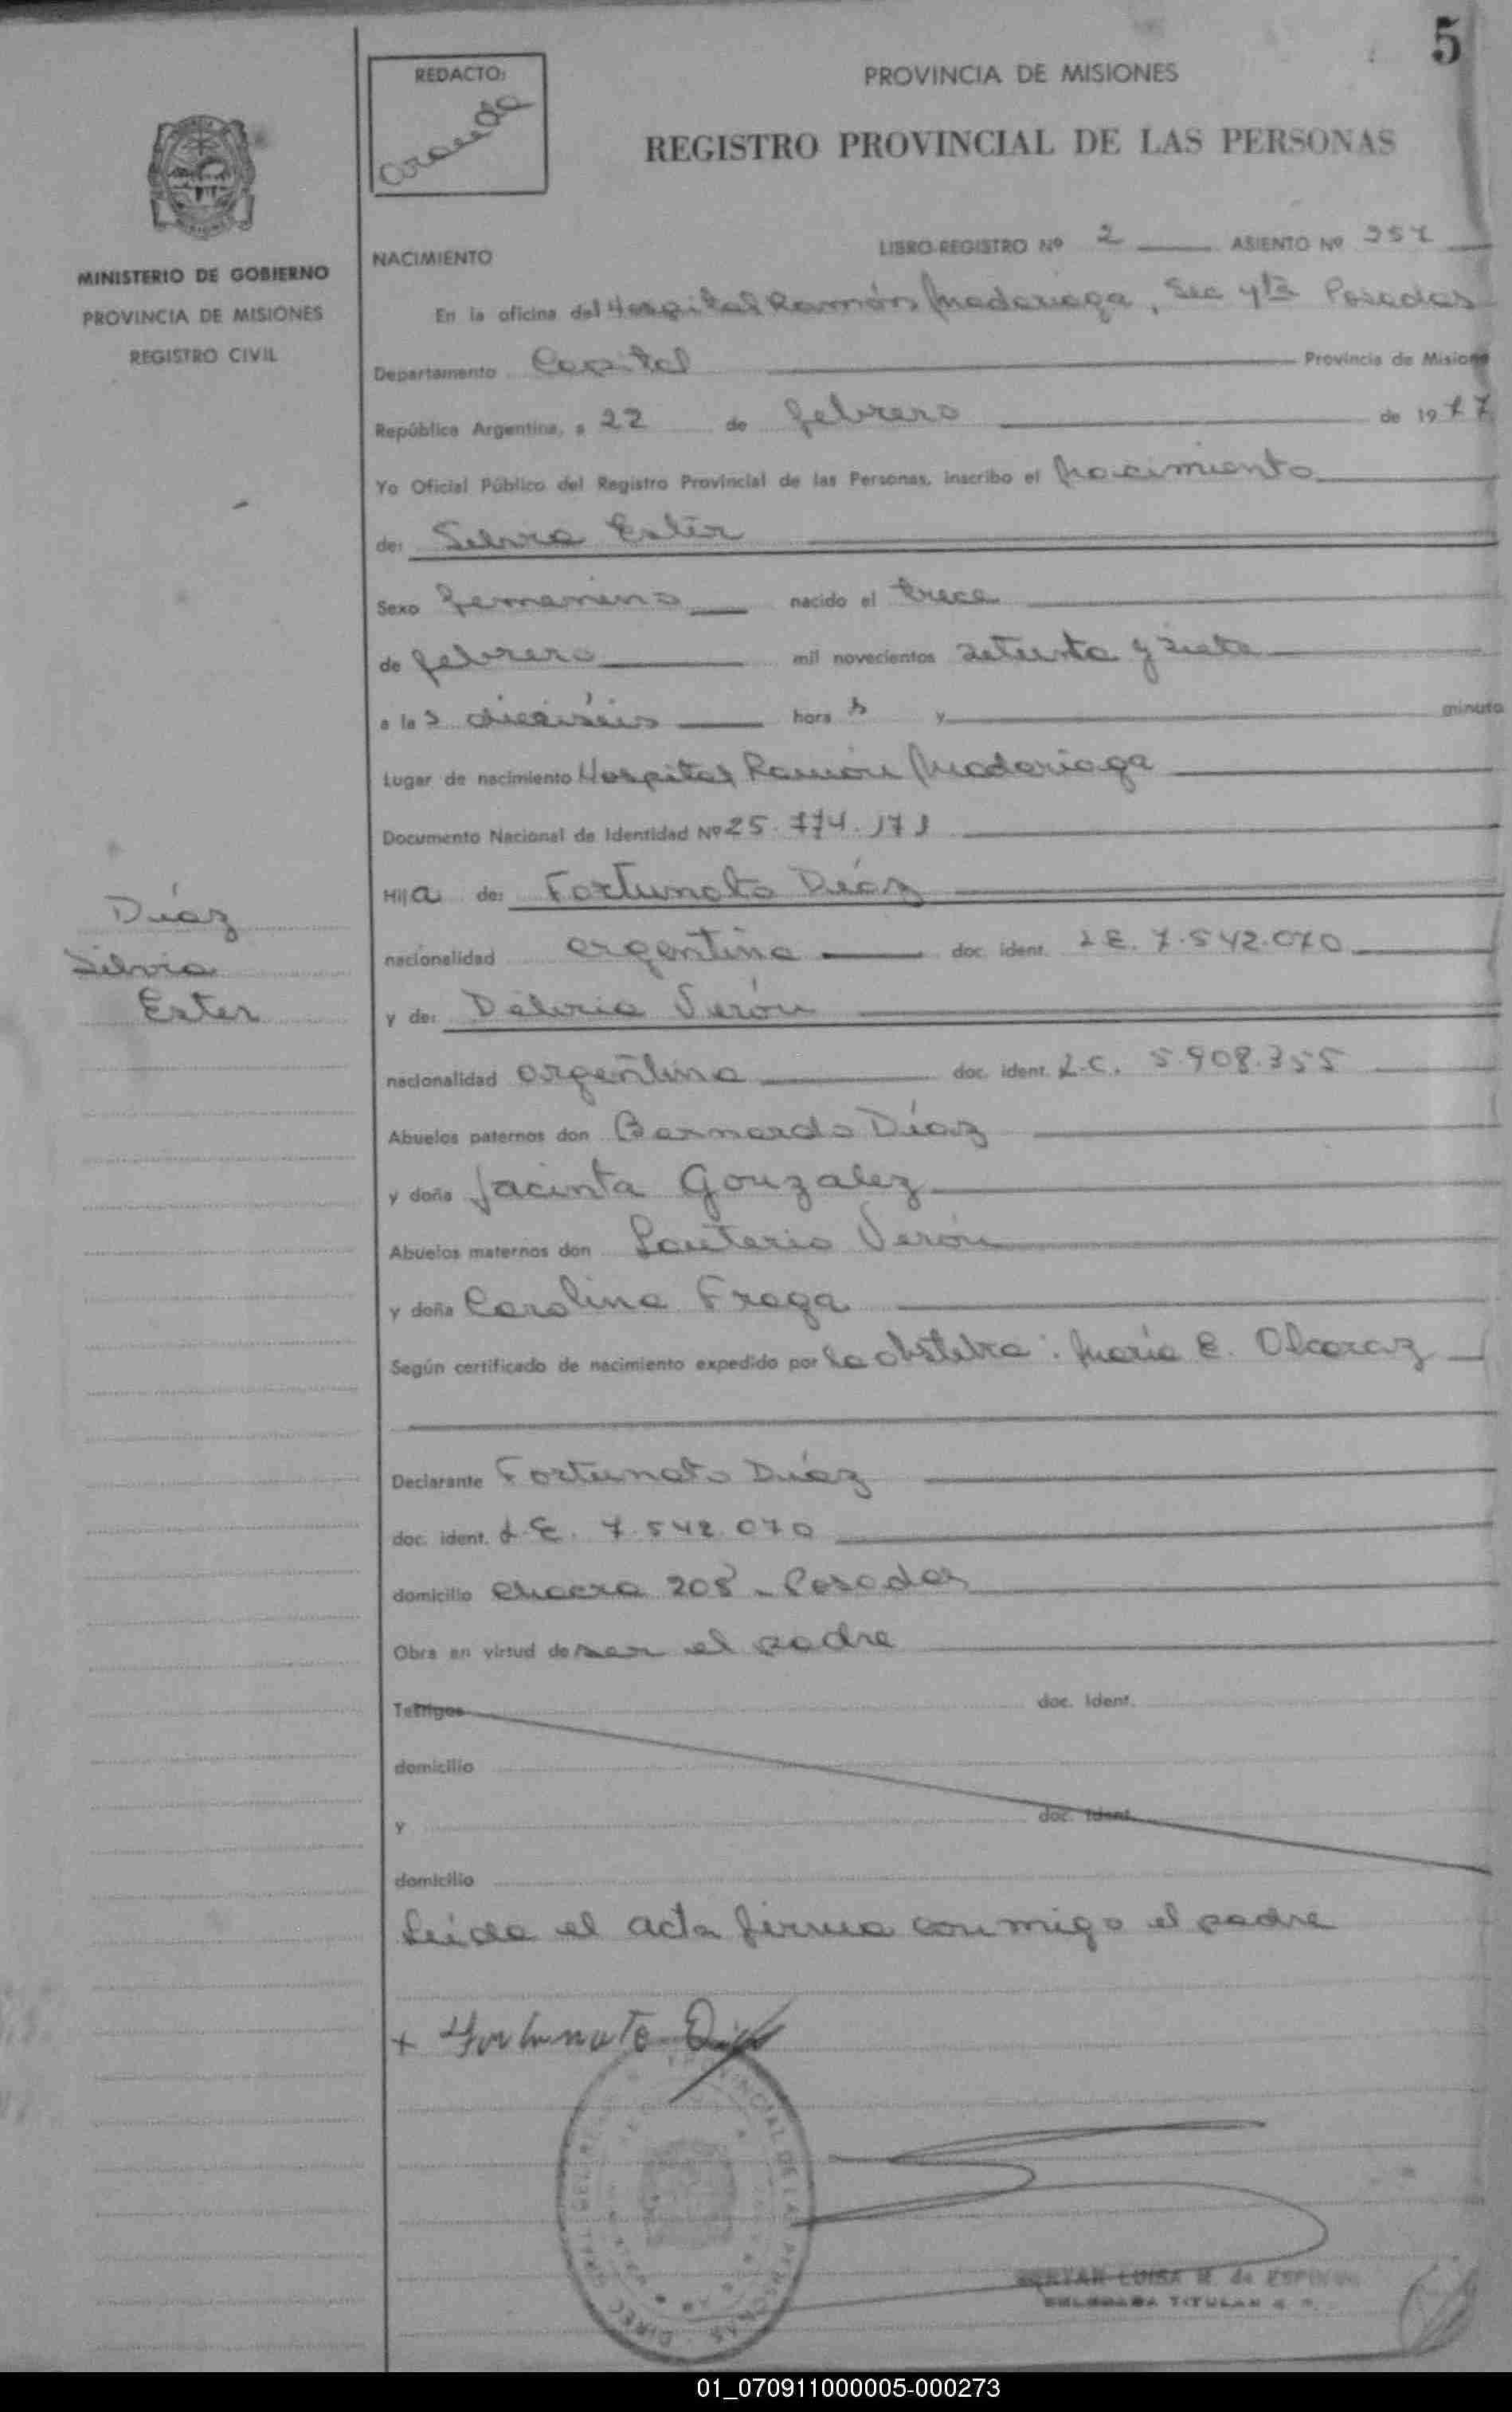 5
REDACTO:
PROVINCIA DE MISIONES
REGISTRO PROVINCIAL DE LAS PERSONAS
MINISTERIO DE GOBIERNO
PROVINCIA DE MISIONES
REGISTRO CIVIL
NACIMIENTO
LIBRO-REGISTRO Nº 2 ASIENTO Nº
En la oficina del Hospital Ramón Madariaga, Sec 4ta Posadas
Departamento Capital Provincia de Misione
República Argentina, a 22 de febrero de 1977
Yo Oficial Público del Registro Provincial de las Personas, inscribo el nacimiento
de: Silvia Ester
Sexo femenino nacido el trece
de febrero mil novecientos setenta y siete
a las dieciséis horas y minuto
Lugar de nacimiento Hospital Ramón Madariaga
Documento Nacional de Identidad Nº 25.774.171
Hija de: Fortunato Díaz
nacionalidad argentina doc. ident. L E. 7.542.070
y de: Delivia Verón
nacionalidad argentina doc. ident. L.C. 5.908.355
Abuelos paternos don Bernardo Díaz
y doña Jacinta Gonzalez
Abuelos maternos don Verón
y doña Carolina Fraga
Según certificado de nacimiento expedido por la obstetra: María E. Alcaraz
Declarante Fortunato Díaz
doc. ident. L.E. 7.542.070
domicilio chacra 208 - Posadas
Obra en virtud de ser el padre
Testigos doc. ident.
domicilio
y doc. ident.
domicilio
Leída el acta firma conmigo el padre
+ Fortunato Diaz
LUISA M. de
TITULAR
Díaz
Silvia
Ester
01_070911000005-000273